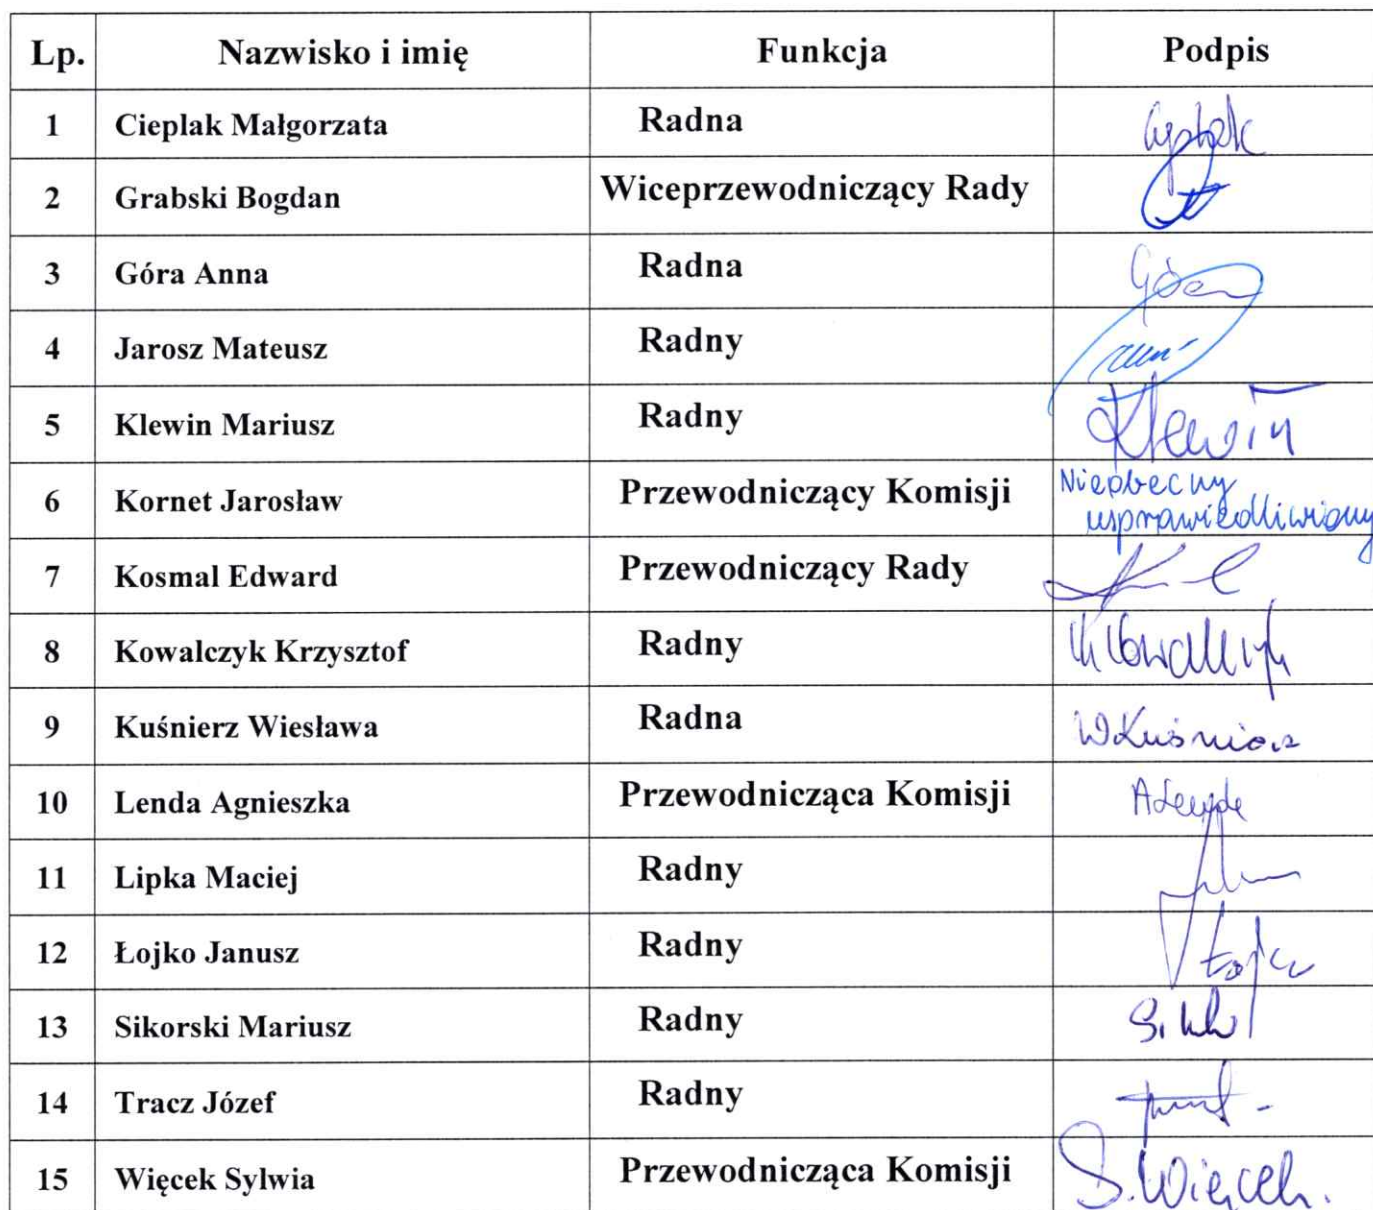 Lp. Nazwisko i imię Funkcja Podpis
1 Cieplak Małgorzata Radna
2 Grabski Bogdan Wiceprzewodniczący Rady
3 Góra Anna Radna Góra
4 Jarosz Mateusz Radny
5 Klewin Mariusz Radny Klewin
6 Kornet Jarosław Przewodniczący Komisji Nieobecny
usprawiedliwiony
7 Kosmal Edward Przewodniczący Rady
8 Kowalczyk Krzysztof Radny K Kowalczyk
9 Kuśnierz Wiesława Radna W Kuśnierz
10 Lenda Agnieszka Przewodnicząca Komisji A Lenda
11 Lipka Maciej Radny
12 Łojko Janusz Radny Łojko
13 Sikorski Mariusz Radny
14 Tracz Józef Radny
15 Więcek Sylwia Przewodnicząca Komisji S. Więcek.